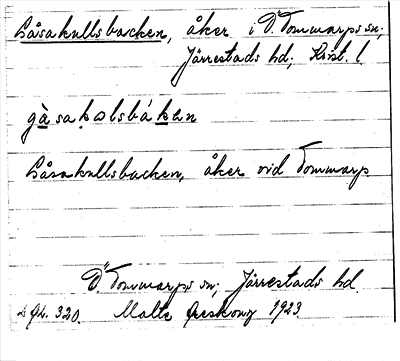 Gåsakullsbacken, åker i Ö. Tommarps sn;
Järrestads hd; Krist. l
gåsakolsbákkən
Gåsakullsbacken, åker vid Tommarp.
Ö. Tommarps sn; Järrestads hd.
320. Malte Areskoug 1923